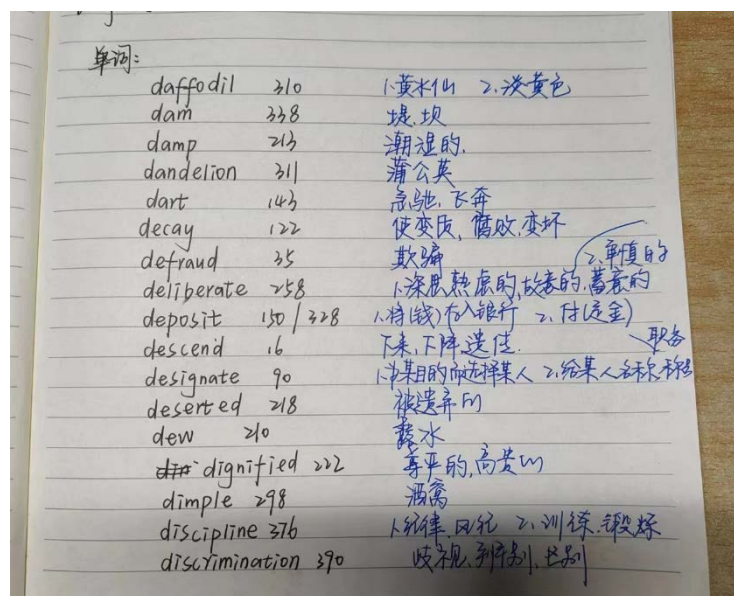 单词:
daffodil 310 1.黄水仙 2.淡黄色
dam 338 堤.坝
damp 213 潮湿的.
dandelion 311 蒲公英
dart 143 急驰.飞奔
decay 122 使变质,腐败,变坏
defraud 35 欺骗 2.审慎的
deliberate 258 1.深思熟虑的,故意的,蓄意的
deposit 150/328 1.将(钱)存入银行 2.付(定金)
descend 16 下来,下降 遗传. 职务
designate 90 1.为某目的而选择某人 2.给某人名称 称号
deserted 218 被遗弃的
dew 210 露水
dignified 222 尊严的,高贵的
dimple 298 酒窝
discipline 376 1.纪律.风纪 2.训练.锻炼
discrimination 390 歧视.判别.区别